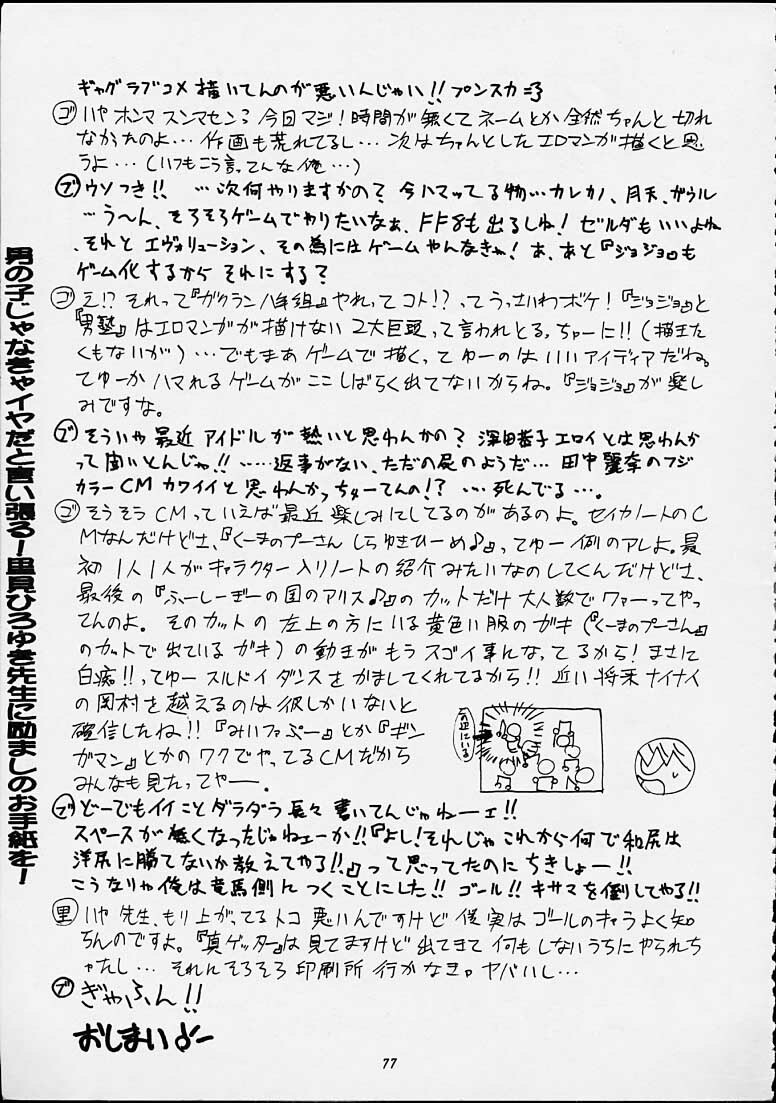 ギャグラブコメ描いてんのが悪いんじゃい!!プンスカ=3
ゴ いや ホンマ スンマセン? 今回マジ!時間が無くてネームとか全然ちゃんと切れ
なかったのよ… 作画も荒れてるし… 次はちゃんとしたエロマンガ描くと思
うよ…(いつもこう言ってんな俺…)
ブ ウソつき!! …次何やりますかの? 今ハマってる物…カレカノ、月天、ガウル
…う〜ん、そろそろゲームでやりたいなぁ、FF8も出るしね!ゼルダもいいよね
、それと エヴォリューション、その為にはゲームやんなきゃ!あ、あと『ジョジョ』も
ゲーム化するから それにする?
ゴ え!? それって『ガクラン八年組』やれってコト!?ってうっさいわボケ!『ジョジョ』と
『男塾』はエロマンガが描けない2大巨頭って言われとる、ちゅーに!!(描きた
くもないが)…でもまあゲームで描くってゆーのはいいアイディアだね。
てゆーか ハマれるゲームがここしばらく出てないからね。『ジョジョ』が楽し
みですな。
ブ そういや最近アイドルが熱いと思わんかの? 深田恭子エロイとは思わんか
って聞いとんじゃ!!……返事がない、ただの屍のようだ… 田中麗奈のフジ
カラーCMカワイイと思わんかっちゅーてんの!? …死んでる…。
ゴ そうそうCMっていえば最近楽しみにしてるのがあるのよ。セイカノートのC
Mなんだけどさ、『くーまのプーさん しらゆきひーめ♪』ってゆー例のアレよ。最
初1人1人がキャラクター入りノートの紹介みたいなのしてくんだけどさ、
最後の『ふーしーぎーの国のアリス♪』のカットだけ大人数でワァーってやっ
てんのよ。そのカットの左上の方にいる黄色い服のガキ(『くーまのプーさん』
のカットで出ているガキ)の動きがもうスゴイ事んなってるから!まさに
白痴!!ってゆースルドイダンスをかましてくれてるから!! 近い将来ナイナイ
の岡村を越えるのは彼しかいないと
確信したね!!『みいファぷー』とか『ギン
ガマン』とかのワクでやってるCMだから
みんなも見たってやー。
この辺にいる
ブ どーでもイイことダラダラ長々書いてんじゃねーェ!!
スペースが無くなったじゃねェーか!!『よし!それじゃこれから何で和尻は
洋尻に勝てないか教えてやる!!』って思ってたのにちきしょー!!
こうなりゃ俺は竜馬側につくことにした!! ゴール!!キサマを倒してやる!!
里 いや先生、もり上がってるトコ悪いんですけど僕実はゴールのキャラよく知
らんのですよ。『真ゲッター』は見てますけど出てきて何もしないうちにやられち
ゃたし… それにそろそろ印刷所行かなきゃヤバいし…
ブ ぎゃふん!!
おしまい♪ー
男の子じゃなきゃイヤだと言い張る!里見ひろゆき先生に励ましのお手紙を!
77